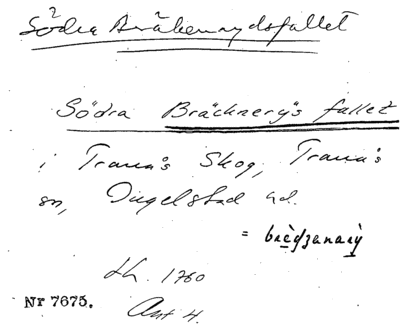 Södra Bräkenrydsfallet
Södra Bräcknerys fallet
i Tranås Skog, Tranås
sn, Ingelstad hd.
= 
Lh. 1760
Nr 7675.
Akt 4.